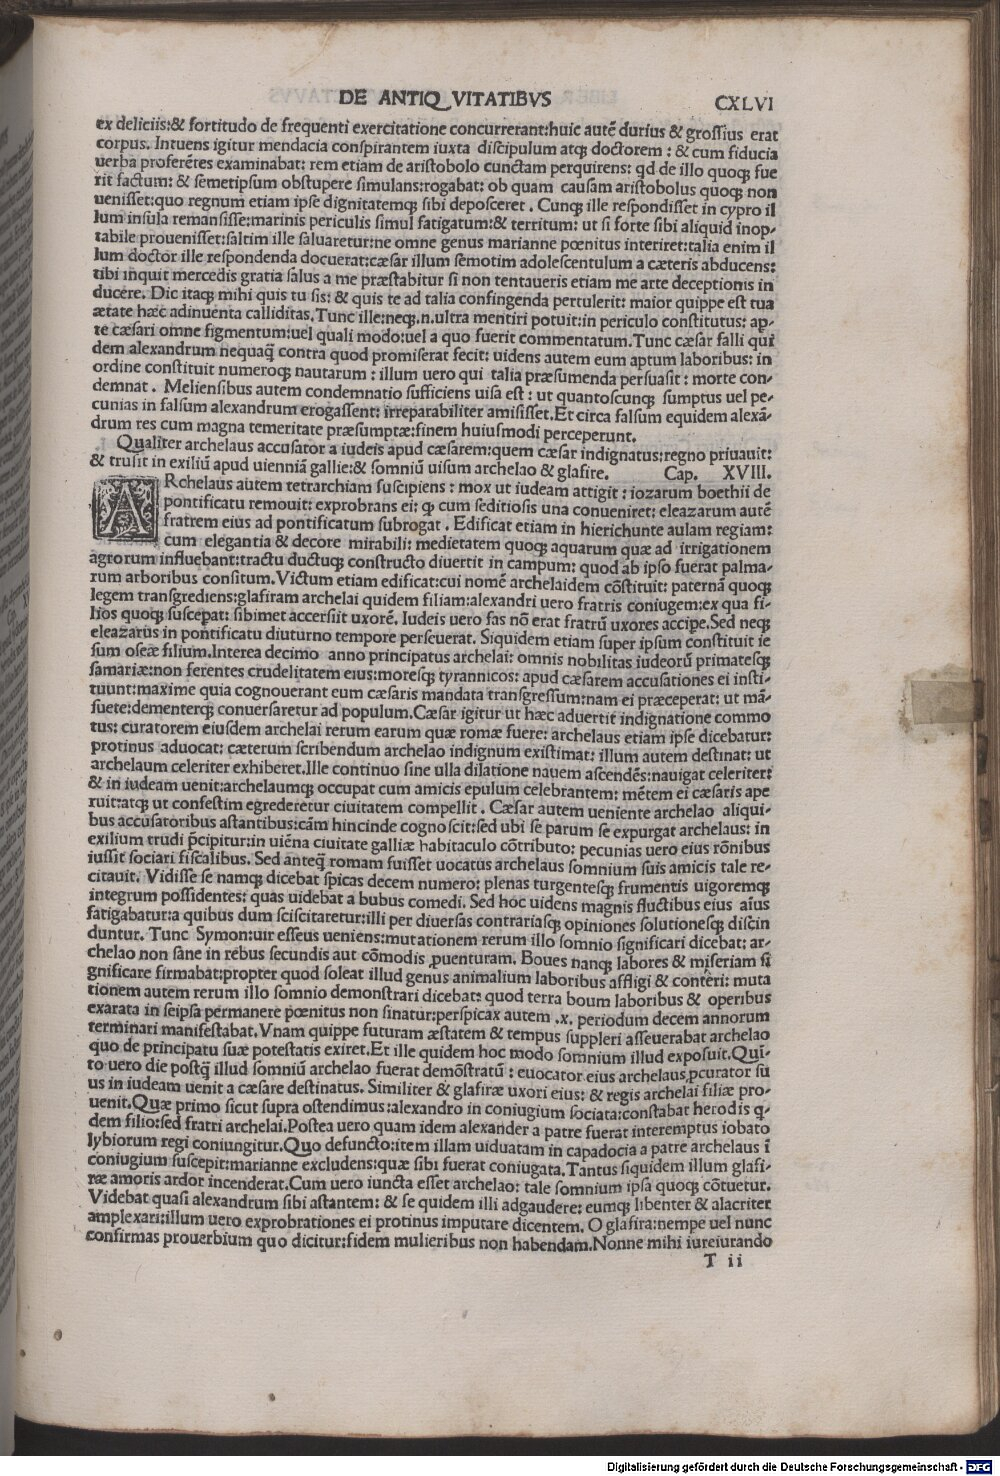 DE ANTIQVITATIBVS
CXLVI
ex deliciis:& fortitudo de frequenti exercitatione concurrerant:huic autē durius & grossius erat
corpus. Intuens igitur mendacia conspirantem iuxta discipulum atq; doctorem : & cum fiducia
uerba proferētes examinabat: rem etiam de aristobolo cunctam perquirens: qd de illo quoq; fue
rit factum: & semetipsum obstupere simulans:rogabat: ob quam causam aristobolus quoq; non
uenisset:quo regnum etiam ipse dignitatemq; sibi deposceret . Cunq; ille respondisset in cypro il
lum insula remansisse:marinis periculis simul fatigatum:& territum: ut si forte sibi aliquid inop-
tabile prouenisset:saltim ille saluaretur:ne omne genus marianne pœnitus interiret:talia enim il
lum doctor ille respondenda docuerat:cæsar illum semotim adolescentulum a cæteris abducens:
tibi inquit mercedis gratia salus a me præstabitur si non tentaueris etiam me arte deceptionis in
ducere. Dic itaq; mihi quis tu sis: & quis te ad talia confingenda pertulerit: maior quippe est tua
ætate hæc adinuenta calliditas.Tunc ille:neq;.n.ultra mentiri potuit:in periculo constitutus: ap-
te cæsari omne figmentum:uel quali modo:uel a quo fuerit commentatum.Tunc cæsar falli qui
dem alexandrum nequaq̃ contra quod promiserat fecit: uidens autem eum aptum laboribus: in
ordine constituit numeroq; nautarum : illum uero qui talia præsumenda persuasit : morte con-
demnat . Meliensibus autem condemnatio sufficiens uisa est : ut quantoscunq; sumptus uel pe-
cunias in falsum alexandrum erogassent: irreparabiliter amisisset.Et circa falsum equidem alexā-
drum res cum magna temeritate præsumptæ:finem huiusmodi perceperunt.
Qualiter archelaus accusator a iudeis apud cæsarem:quem cæsar indignatus:regno priuauit:
& trusit in exiliū apud uienniā gallie:& somniū uisum archelao & glafire. Cap. XVIII.
ARchelaus autem tetrarchiam suscipiens : mox ut iudeam attigit : iozarum boethii de
pontificatu remouit: exprobrans ei: ꝙ cum seditiosis una conueniret: eleazarum autē
fratrem eius ad pontificatum subrogat . Edificat etiam in hierichunte aulam regiam:
cum elegantia & decore mirabili: medietatem quoq; aquarum quæ ad irrigationem
agrorum influebant:tractu ductuq; constructo diuertit in campum: quod ab ipso fuerat palma-
rum arboribus consitum.Victum etiam edificat:cui nomē archelaidem cōstituit: paternā quoq;
legem transgrediens:glafiram archelai quidem filiam:alexandri uero fratris coniugem:ex qua fi-
lios quoq; suscepat: sibimet accersiit uxorē. Iudeis uero fas nō erat fratrū uxores accipe.Sed neq;
eleazarus in pontificatu diuturno tempore perseuerat. Siquidem etiam super ipsum constituit ie
sum oseæ filium.Interea decimo anno principatus archelai: omnis nobilitas iudeorū primatesq;
samariæ:non ferentes crudelitatem eius:moresq; tyrannicos: apud cæsarem accusationes ei insti-
tuunt:maxime quia cognouerant eum cæsaris mandata transgressum:nam ei præceperat: ut mā-
suete:dementerq; conuersaretur ad populum.Cæsar igitur ut hæc aduertit indignatione commo
tus: curatorem eiusdem archelai rerum earum quæ romæ fuere: archelaus etiam ipse dicebatur:
protinus aduocat: cæterum scribendum archelao indignum existimat: illum autem destinat: ut
archelaum celeriter exhiberet.Ille continuo sine ulla dilatione nauem ascendēs:nauigat celeriter:
& in iudeam uenit:archelaumq; occupat cum amicis epulum celebrantem: mētem ei cæsaris ape
ruit:atq; ut confestim egrederetur ciuitatem compellit . Cæsar autem ueniente archelao aliqui-
bus accusatoribus astantibus:cām hincinde cognoscit:sed ubi se parum se expurgat archelaus: in
exilium trudi p̄cipitur:in uiēna ciuitate galliæ habitaculo cōtributo: pecunias uero eius rōnibus
iussit sociari fiscalibus. Sed anteq̃ romam fuisset uocatus archelaus somnium suis amicis tale re-
citauit. Vidisse se namq; dicebat spicas decem numero: plenas turgentesq; frumentis uigoremq;
integrum possidentes: quas uidebat a bubus comedi. Sed hoc uidens magnis fluctibus eius aīus
fatigabatur:a quibus dum sciscitaretur:illi per diuersas contrariasq; opiniones solutionesq; discin
duntur. Tunc Symon:uir esseus ueniens:mutationem rerum illo somnio significari dicebat: ar-
chelao non sane in rebus secundis aut cōmodis ꝓuenturam. Boues nanq; labores & miseriam si
gnificare firmabat:propter quod soleat illud genus animalium laboribus affligi & conteri: muta
tionem autem rerum illo somnio demonstrari dicebat: quod terra boum laboribus & operibus
exarata in seipsa permanere pœnitus non sinatur:perspicax autem .x. periodum decem annorum
terminari manifestabat.Vnam quippe futuram æstatem & tempus suppleri asseuerabat archelao
quo de principatu suæ potestatis exiret.Et ille quidem hoc modo somnium illud exposuit.Quī-
to uero die postq̃ illud somniū archelao fuerat demōstratū : euocator eius archelaus ꝓcurator su
us in iudeam uenit a cæsare destinatus. Similiter & glafiræ uxori eius: & regis archelai filiæ pro-
uenit.Quæ primo sicut supra ostendimus:alexandro in coniugium sociata:constabat herodis q-
dem filio:sed fratri archelai.Postea uero quam idem alexander a patre fuerat interemptus iobato
lybiorum regi coniungitur.Quo defuncto:item illam uiduatam in capadocia a patre archelaus ī
coniugium suscepit:marianne excludens:quæ sibi fuerat coniugata.Tantus siquidem illum glafi-
ræ amoris ardor incenderat.Cum uero iuncta esset archelao: tale somnium ipsa quoq; cōtuetur.
Videbat quasi alexandrum sibi astantem: & se quidem illi adgaudere: eumq; libenter & alacriter
amplexari:illum uero exprobrationes ei protinus imputare dicentem. O glafira:nempe uel nunc
confirmas prouerbium quo dicitur:fidem mulieribus non habendam.Nonne mihi iureiurando
T ii
Digitalisierung gefördert durch die Deutsche Forschungsgemeinschaft - DFG